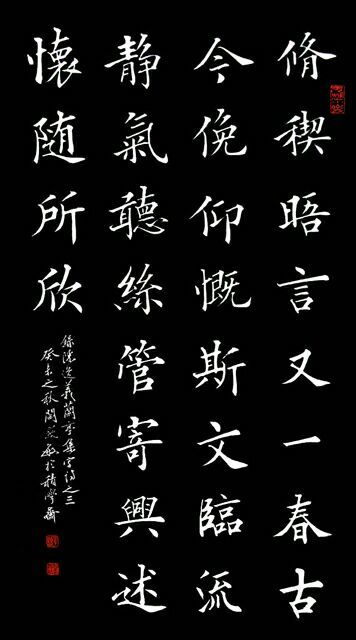 脩稧晤言又一春古
今俛仰慨斯文臨流
靜氣聽絲管寄興述
懷随所欣
義蘭亭集字詩之三
癸未之秋於積學齋